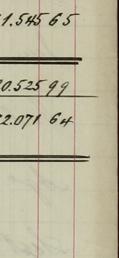 1.545 65
0.525 99
2.071 64